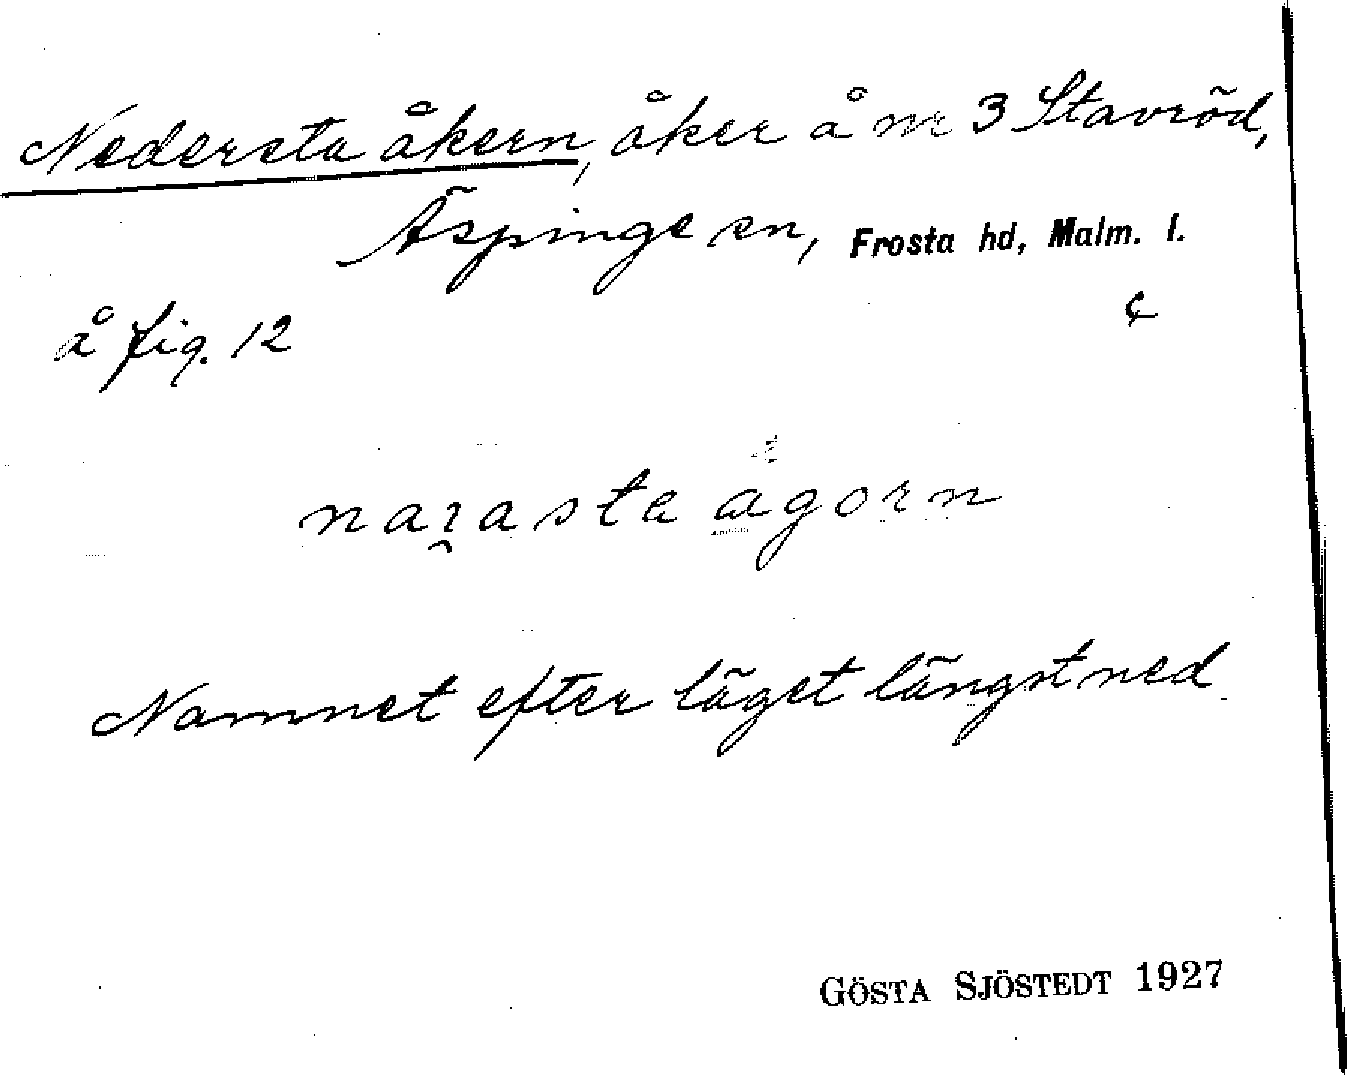 Nedersta åkern, åker å nr 3 Stavröd,
Äspinge sn, Frosta hd, Malm. l.
¢
å fig. 12
narasta ågorn
Namnet efter läget längst ned
GÖSTA SJÖSTEDT 1927